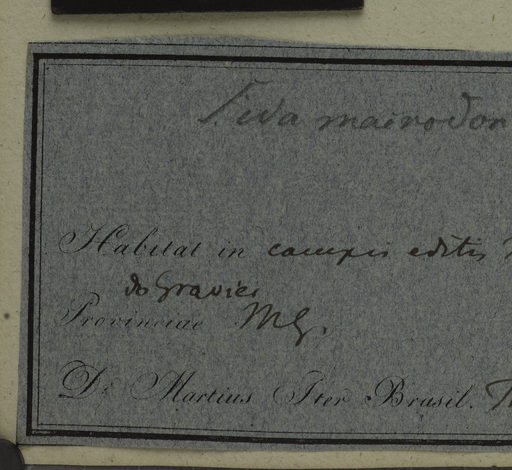 Sida macrodon
Habitat in campis editis
do Gravier
Provinciae MG.
Dr. Martius Iter Brasil.